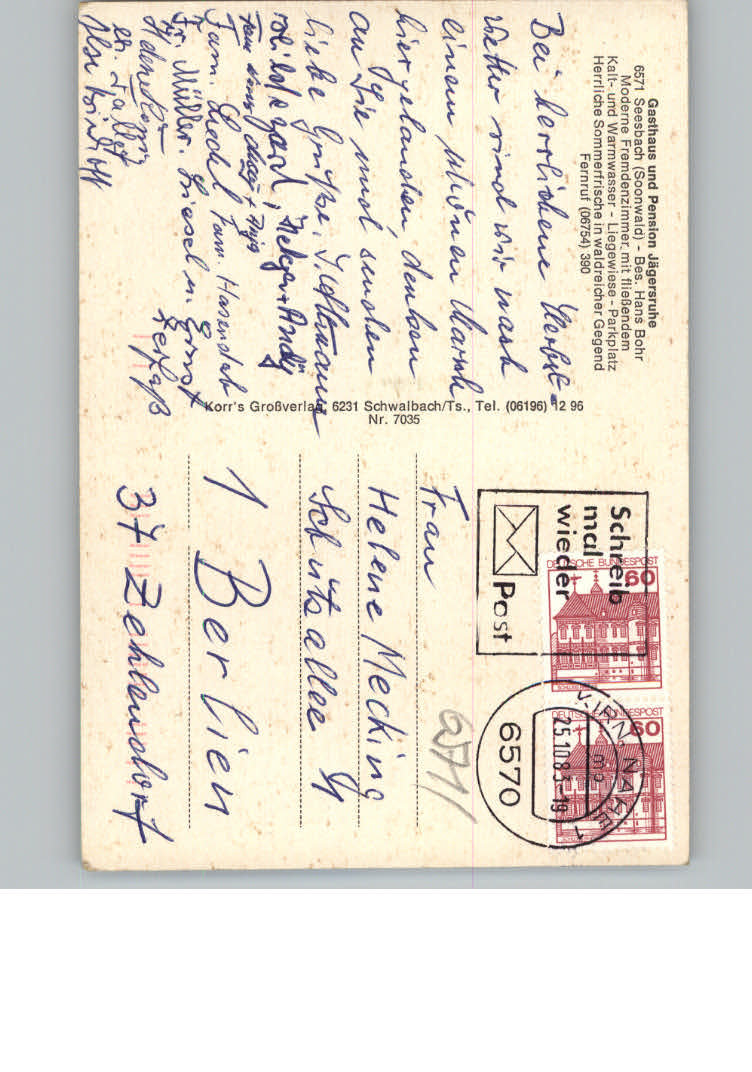 Gasthaus und Pension Jägersruhe
6571 Seesbach (Soonwald) - Bes. Hans Bohr
Moderne Fremdenzimmer mit fließendem
Kalt- und Warmwasser - Liegewiese - Parkplatz
Herrliche Sommerfrische in waldreicher Gegend
Fernruf (06754) 390
Bei herrlichene Herbst-
wetter sind wir nach
einem schönen Marsch
hier gelanden, denken
an Sie und senden
liebe Grüße,
Andy
Fam.
Fam. Hasenstab
Fr. Müller. Liesel u. Ernst
Korr's Großverlag, 6231 Schwalbach/Ts., Tel. (06196) 12 96
Nr. 7035
Schreib
mal
wieder
Post
DEUTSCHE BUNDESPOST
60
DEUTSCHE BUNDESPOST
60
KIRN, NAHE 1
25.10.83-19
6570
6571
Frau
Helene Mecking
Schützallee
1 Berlien
37 Zehlendorf